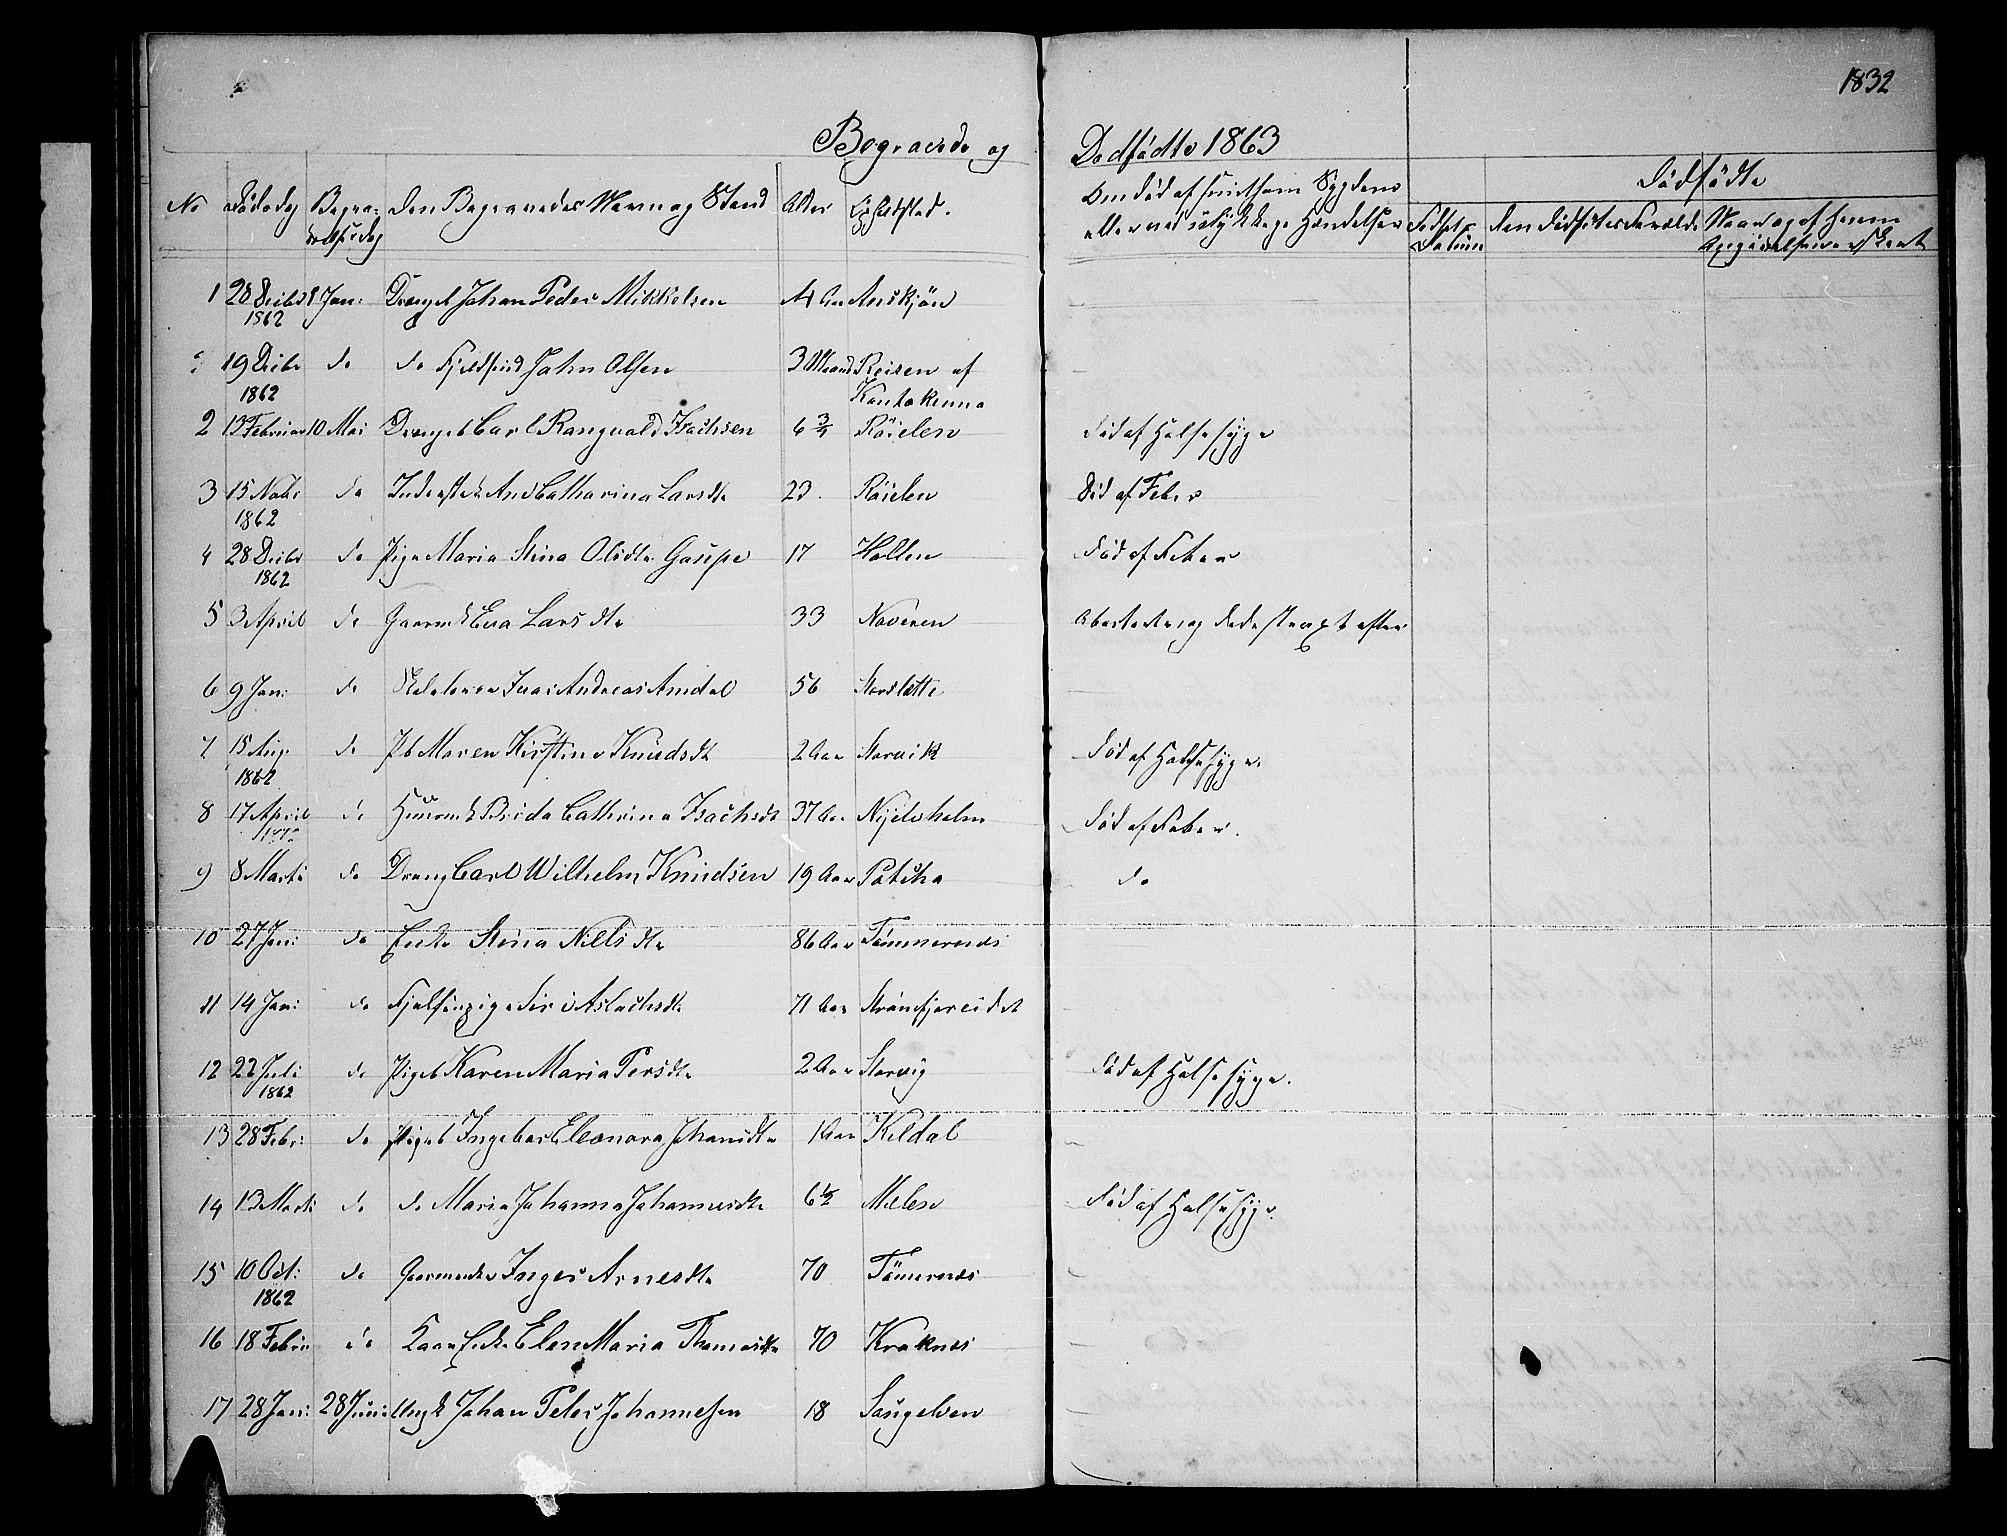 1832
Begravede og Dødfødte 1863
No Dødsdag Begravelsesdag Den Begravedes Navn og Stand Alder Opholdsted. Om død af smitsom Sygdom
eller ved ulykkelige Hændelser Dødfødte
Fødsels Datum Den Dødfødtes Forældre Naar og af hvem
1 28 Decbr 1862 1 Jan: Drengeb Johan Peder Mikkelsen 4 Aar
19 Decbr 1862 do do Fjeldfind John Olsen 3 Maaned Reisen af
Kautokeino
2 13 Februar 10 Mai Drengeb Carl Rangvald Isachsen 6 3/4 Röielen Död af Halssyge
3 15 Novbr 1862 do Ane Catharina Larsdtr 23. Röielen Död af Feber
4 28 Decbr 1862 do Pige Maria Stina Olsdtr Gaupe 17 Hallen Död af Feber
5 3 April do Gaardmk Eva Larsdtr 33 Naveren
6 9 Jan: do Skolelærer Andreas Amdal 56 Storslette
7 15 Aug 1862 do Pb Maren Kirstine Knudsdt 2 Aar Storvik Död af Halssyge.
8 17 April do Huusmk Brida Cathrina Isachsdt 37 Aar Nijelvholm Död af Feber.
9 8 Marts do Dreng Carl Wilhelm Knudsen 19 Aar Potcka do
10 27 Jan: do Enke Stina Nilsdtr 86 Aar Tömmernes
11 14 Jan: do Fjelfinpige Siri Aslachsdtr 71 Aar
12 22 Juli 1862 do Pigeb Karen Maria Persdtr 2 Aar Storvig Död af Halssyge.
13 28 Febr: do Pigeb Ingebor Eleonora Johansdtr 1 Aar Kildal
14 13 Marts do do Maria Johanna Johannesdtr 6 1/2 Mælen Död af Halssyge.
15 10 Oct: 1862 do Inger Arnesdtr 70 Tömernes
16 18 Febru do Elen Maria Thomasdtr 70 Kraknes
17 28 Jan: 28 Juni: Ungk Johan Peter Johannesen 18 Sangelven